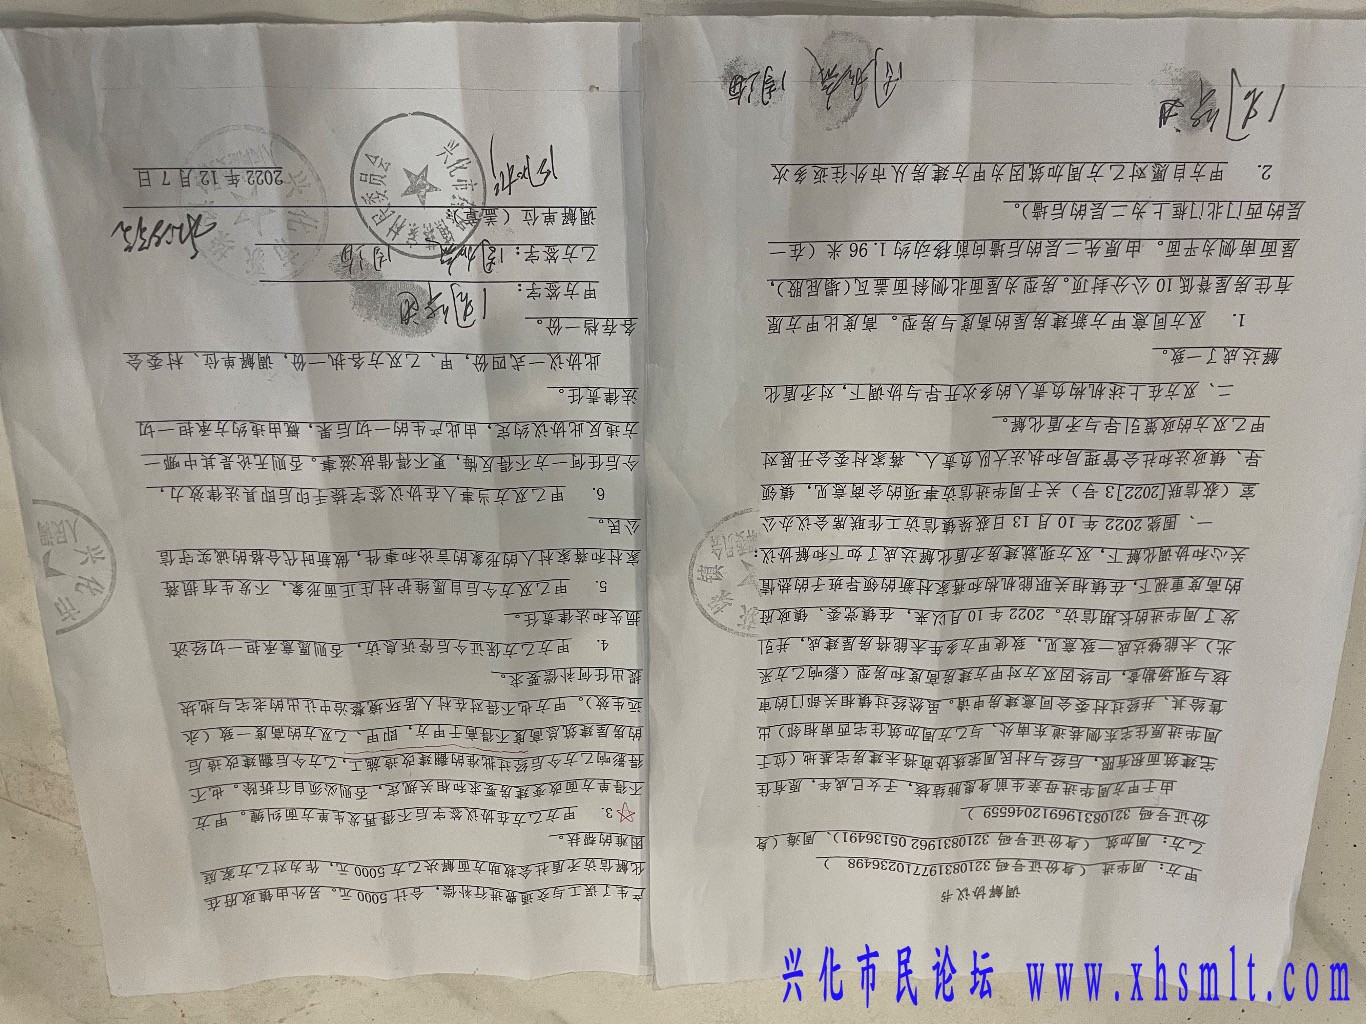 调解协议书
甲方：周华进（身份证号码 321083197710236498 ）
乙方：周加筑（身份证号码 3210831962 05136491）、周海（身
份证号码 321083196912046559）
由于甲方周华进母亲生前身患肺结核，子女已成年，原有住
宅建筑面积有限，后经与村民周荣殊协商将未建房宅基地（位于
周华进原住宅东侧巷道东南处、与乙方周加筑住宅西南相邻）出
售给其，并经过村委会同意建房申请。虽然经过镇相关部门的审
核与现场勘查，但终因双方对甲方建房高度和房型（影响乙方采
光）未能够达成一致意见，致使甲方多年未能将房屋建成，并引
发了周华进的长期信访。2022 年 10 月以来，在镇党委、镇政府
的高度重视下，在镇相关职能机构和蒋家村新的领导班子的热情
关心和协调化解下，双方现就建房矛盾化解达成了如下和解协议：
一、围绕 2022 年 10 月 13 日荻垛镇信访工作联席会议办公
室（荻信联[2022]3 号）关于周华进信访事项的会商意见，镇领
导、镇政法和社会管理局和执法大队负责人、蒋家村委会开展对
甲乙双方的政策引导与矛盾化解。
二、双方在上述机构负责人的多次开导与协调下，对矛盾化
解达成了一致。
1. 双方同意甲方新建房屋的高度与房型。高度比甲方原
有住房屋脊低 10 公分封顶。房型为屋面北侧斜面盖瓦（塌屁股），
屋面南侧为平面。由原先二层的后墙向前移动约 1.96 米（在一
层的西门北门框上为二层的后墙）。
2. 甲方自愿对乙方周加筑因为甲方建房从市外往返多次
周华进
周加筑 周海
产生了误工与交通费进行补偿，合计 5000 元。另外由镇政府在
化解信访矛盾社会救助方面解决乙方 5000 元，作为对乙方家庭
困难的帮扶。
☆3. 甲方乙方在协议签字后不得再发生单方面纠缠。甲方
不得单方面改变建房要求和相关规定，否则必须自行拆除。也不
得影响乙方今后经过批准的翻建改造施工，乙方今后翻建改造后
的房屋建筑总高度不得高于甲方，即甲、乙双方的高度一致（永
远生效）。甲方也不得对在村人居环境整治中让出的老宅与地块
提出任何补偿要求。
4. 甲方乙方保证今后停诉息访，否则愿意承担一切经济
损失和法律责任。
5. 甲乙双方今后自愿维护村庄正面形象，不发生有损蒋
家村和蒋家村人的形象的言论和事件，做新时代合格的诚实守信
公民。
6. 甲乙双方当事人在协议签字按手印后即具法律效力，
今后任何一方不得反悔，更不得借故滋事。否则无论是其中哪一
方违反此协议约定，由此产生的一切后果，概由违约方承担一切
法律责任。
此协议一式四份，甲、乙双方各执一份，调解单位、村委会
各存档一份。
甲方签字：周华进
乙方签字：周加筑 周海
调解单位（盖章）：
2022 年 12 月 7 日
兴化市民论坛 www.xhsmlt.com